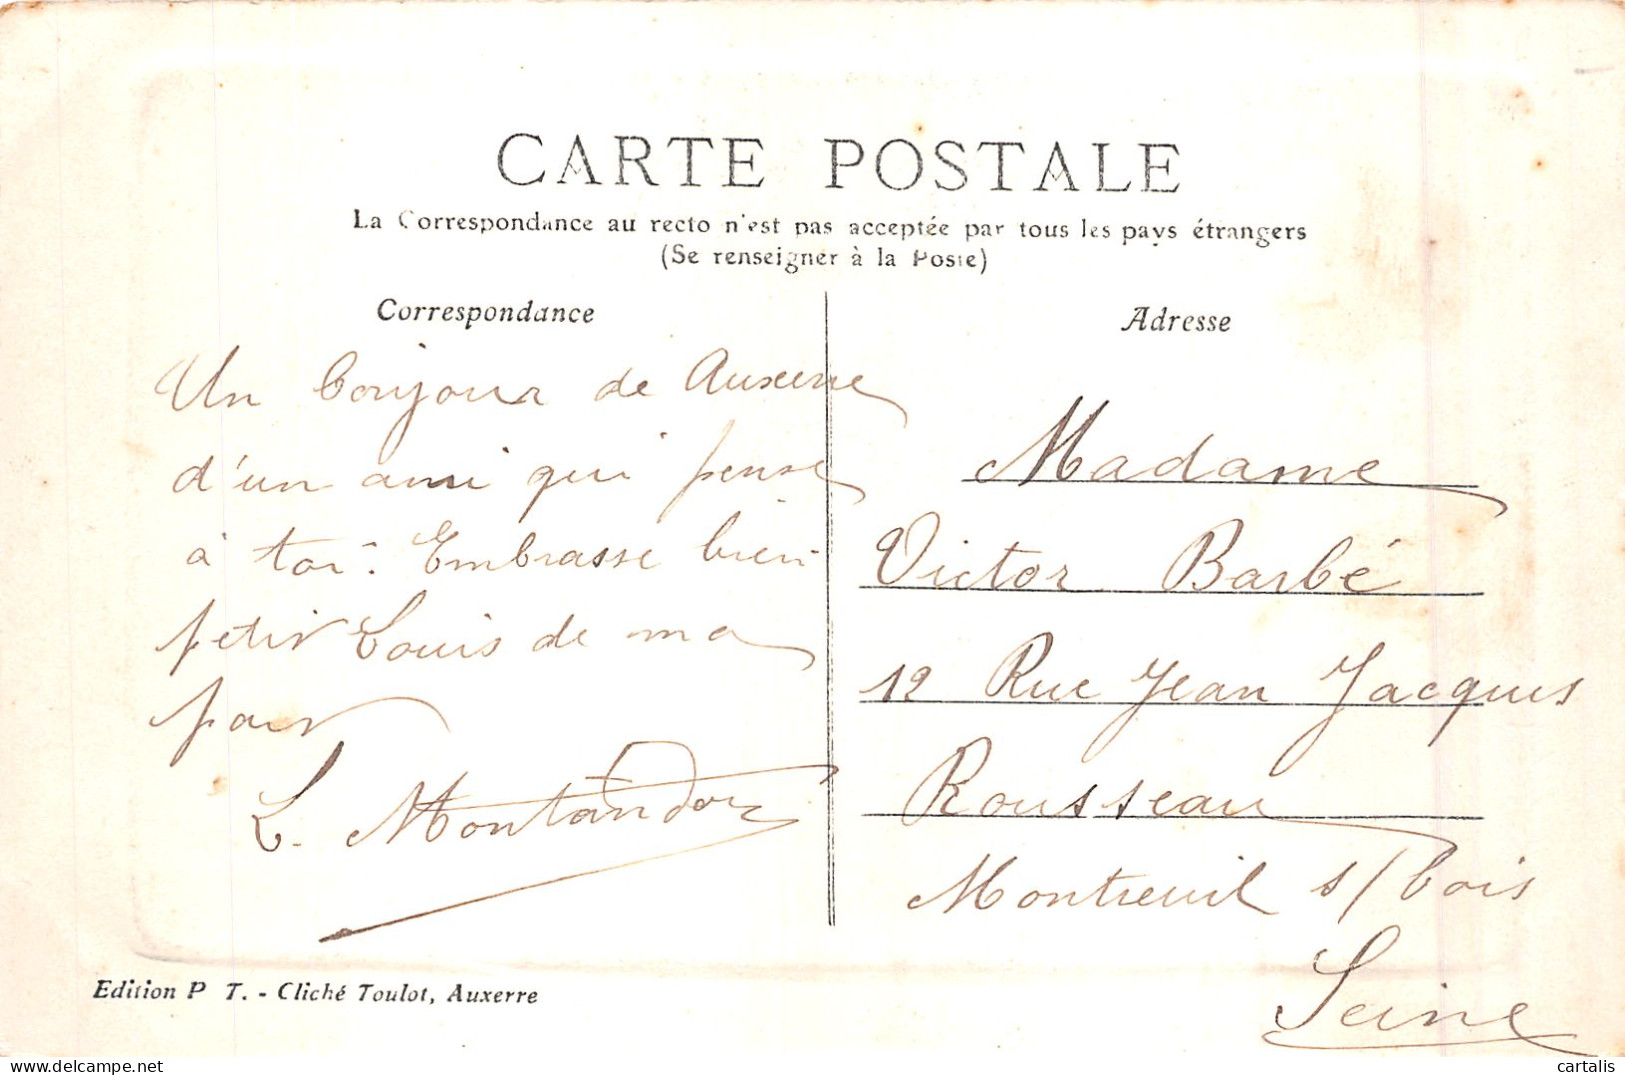 CARTE POSTALE
La Correspondance au recto n'est pas acceptée par tous les pays étrangers
(Se renseigner à la Poste)
Correspondance
Un bonjour de Auxerre
d'un ami qui pense
à toi. Embrasse bien
petit Louis de ma
part
L. Montandon
Adresse
Madame
Victor Barbé
12 Rue Jean Jacques
Rousseau
Montreuil s/ bois
Seine
Edition P T. - Cliché Toulot, Auxerre
cartalis